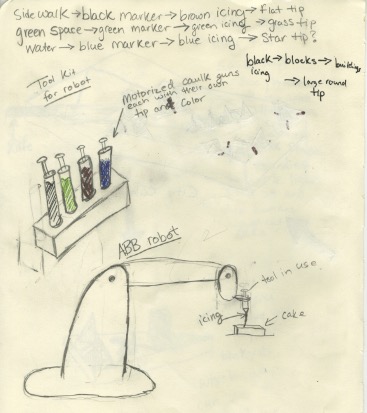 Side walk → black marker → brown icing → flat tip
green space → green marker → green icing → grass tip
Water → blue marker → blue icing → Star tip?
black → blocks → buildings
icing
→ large round
tip
Tool Kit
for robot
Motorized caulk guns
each with their own
tip and color
ABB robot
tool in use
icing
cake